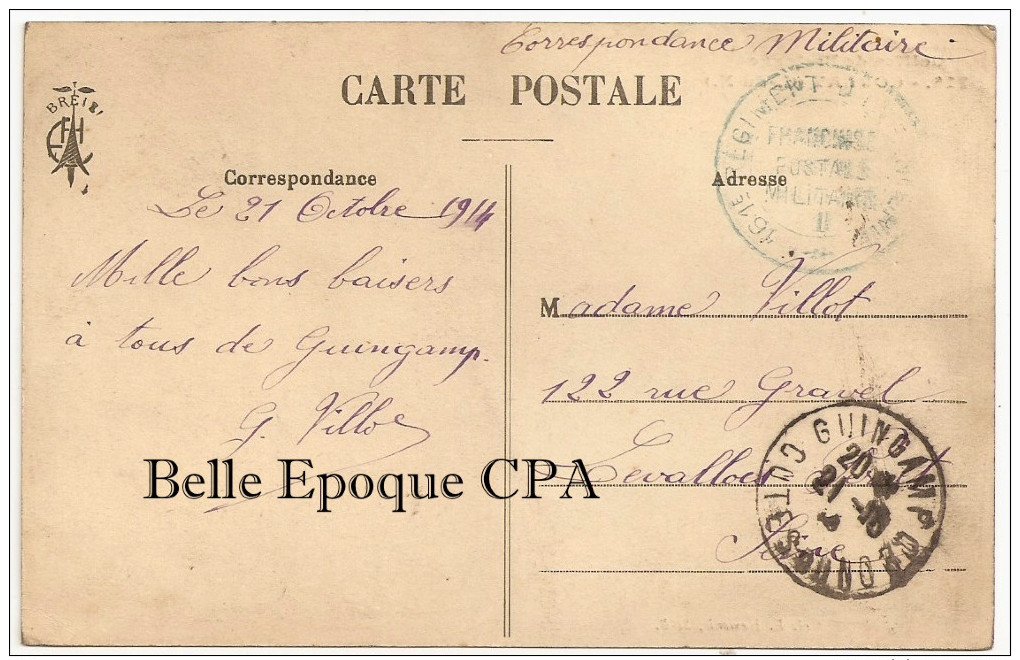 Correspondance Militaire.
CARTE POSTALE
BREIZ
EHF
Correspondance
Adresse
161E RÉGIMENT D'INFANTERIE
FRANCHISE
POSTALE
MILITAIRE
Le 21 Octobre 1914
Mille bons baisers
à tous de Guingamp.
G. Villot
Madame Villot
122 rue Gravel
Levallois
Seine
GUINGAMP COTES DU NORD
20
21 -10
Belle Epoque CPA